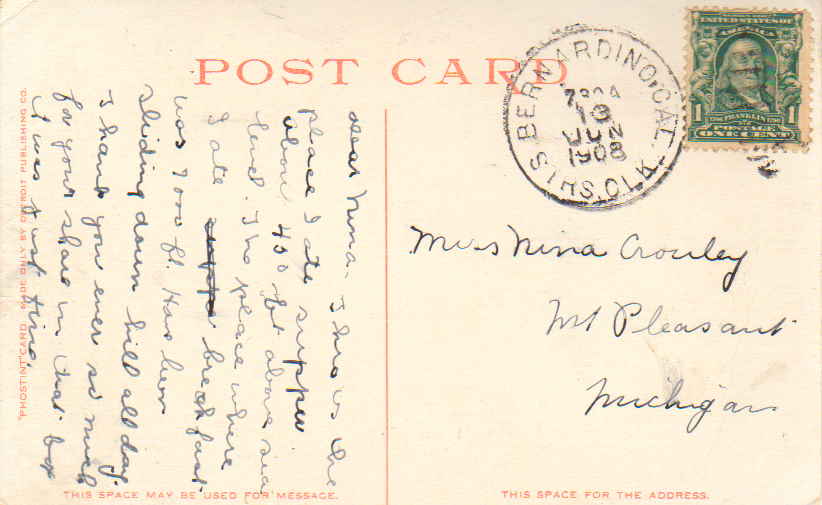 POST CARD
UNITED STATES OF
AMERICA
1 1
1706 FRANKLIN 1790
POSTAGE
ONE CENT
BERNARDINO, CAL.
19
JUN
1908
Dear Nina - This is the
place I ate supper
about 450 ft above sea
level. The place where
I ate breakfast
was 7000 ft. Has been
Sliding down hill all day.
Thank you ever so much
for your share in that box
it was just fine.
Miss Nina Crowley
Mt Pleasant
Michigan
"PHOSTINT" CARD. MADE ONLY BY DETROIT PUBLISHING CO.
THIS SPACE MAY BE USED FOR MESSAGE.
THIS SPACE FOR THE ADDRESS.